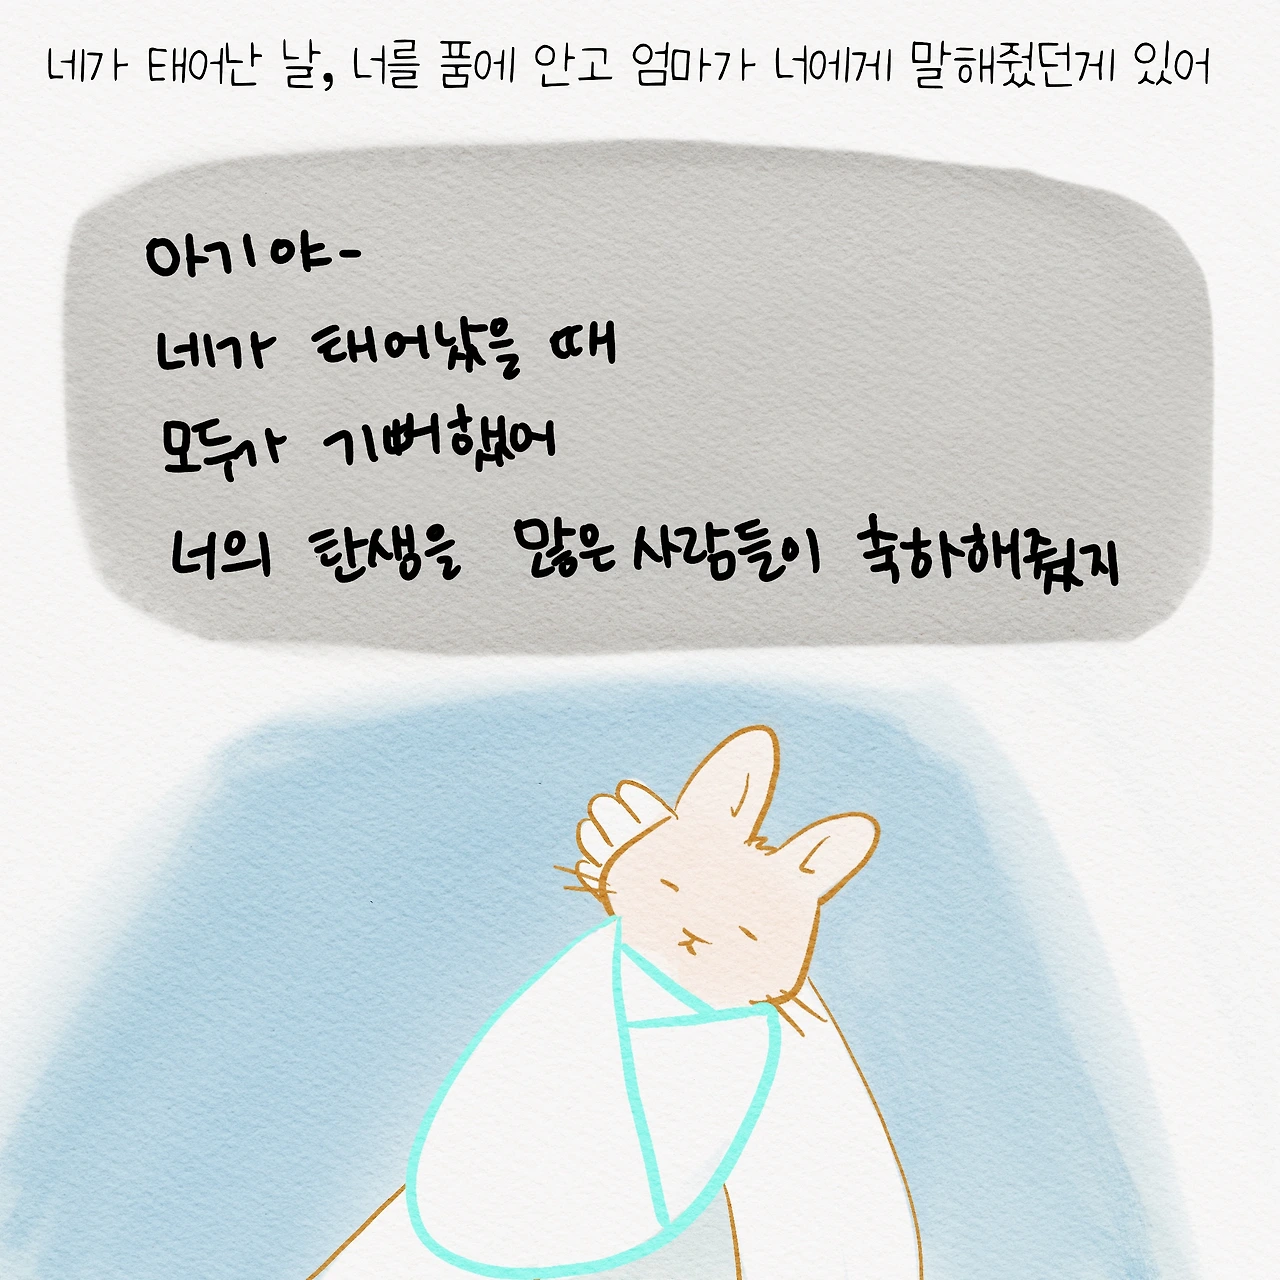 네가 태어난 날, 너를 품에 안고 엄마가 너에게 말해줬던게 있어
아기야-
네가 태어났을 때
모두가 기뻐했어
너의 탄생을 많은 사람들이 축하해줬지